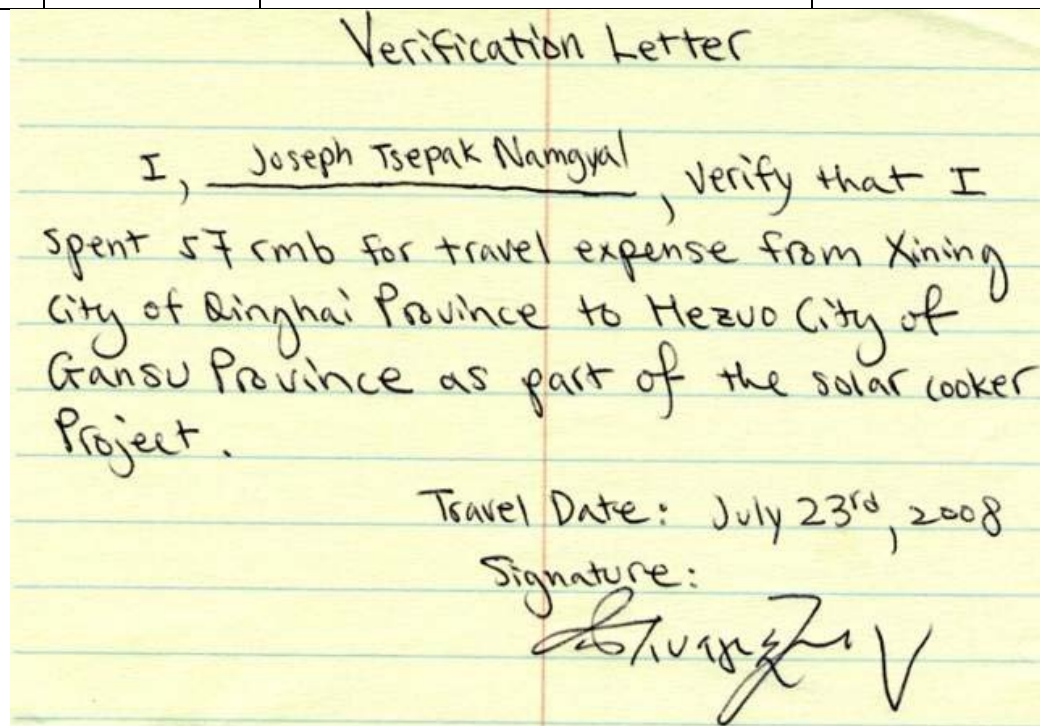 Verification Letter
I, Joseph Tsepak Namgyal, verify that I
spent 57 rmb for travel expense from Xining
City of Qinghai Province to Hezuo City of
Gansu Province as part of the solar cooker
Project.
Travel Date: July 23rd, 2008
Signature: